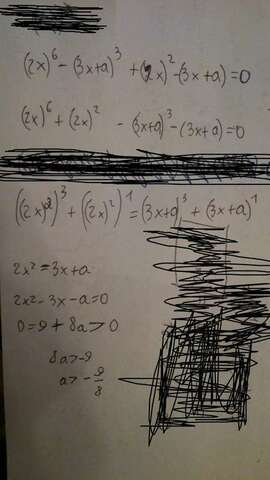 (2x)⁶ - (3x+a)³ + (2x)² - (3x+a) = 0
(2x)⁶ + (2x)² - (3x+a)³ - (3x+a) = 0
((2x)²)³ + ((2x)²)¹ = (3x+a)³ + (3x+a)¹
2x² = 3x+a
2x² - 3x - a = 0
D = 9 + 8a > 0
8a > -9
a > - 9/8